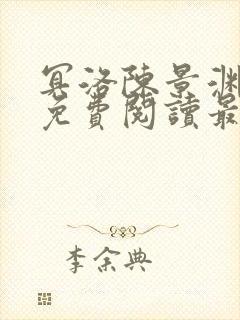 冥洛陳景淵
免費閱讀最
李余典